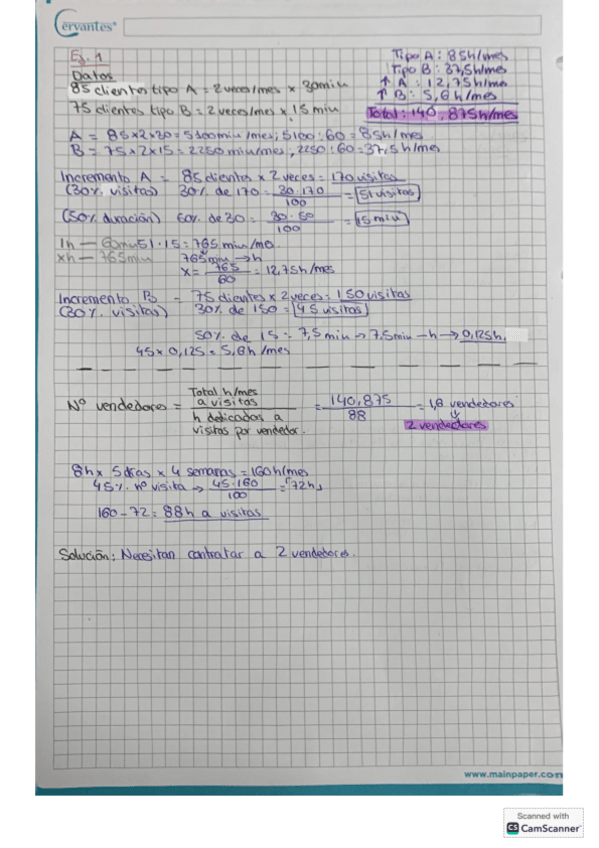 Cervantes
Ej. 1
Datos
85 clientes tipo A = 2 veces/mes x 30min
75 clientes tipo B = 2 veces/mes x 15 min
Tipo A: 85h/mes
Tipo B: 37,5h/mes
↑ A : 12,75h/mes
↑ B : 5,6 h/mes
Total: 140,875h/mes
A = 85x2x30 = 5100min/mes; 5100:60 = 85h/mes
B = 75x2x15 = 2250min/mes; 2250:60 = 37,5h/mes
Incremento A = 85 clientes x 2 veces = 170 visitas
(30% visitas) 30% de 170 = 30·170 / 100 = 51 visitas
(50% duración) 50% de 30 = 30·50 / 100 = 15 min
1h — 60min 51·15 = 765 min/mo.
xh — 765min 765min → h
x = 765 / 60 = 12,75h/mes
Incremento B = 75 clientes x 2 veces = 150 visitas
(30% visitas) 30% de 150 = 45 visitas
50% de 15 = 7,5 min → 7,5min – h → 0,125h.
45 x 0,125 = 5,6h/mes
Nº vendedores = Total h/mes a visitas / h dedicados a visitas por vendedor. = 140,875 / 88 = 1,6 vendedores
2 vendedores
8h x 5 días x 4 semanas = 160h/mes
45% nº visita → 45·160 / 100 = 72h
160-72 = 88h a visitas
Solución: Necesitan contratar a 2 vendedores.
www.mainpaper.com
Scanned with
CS CamScanner